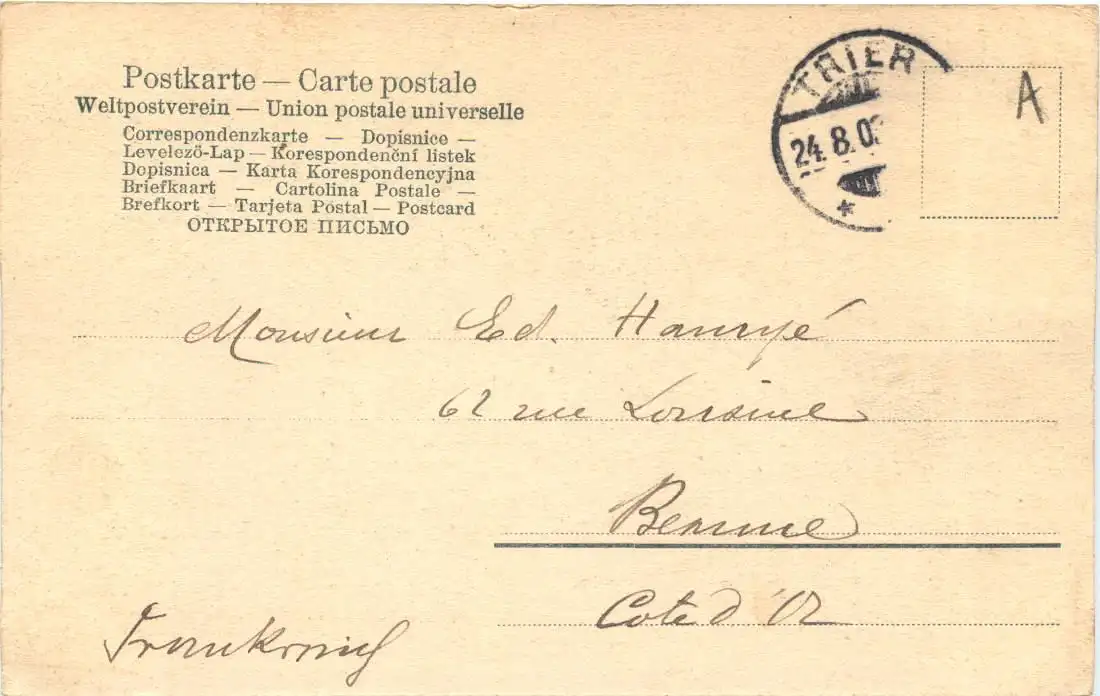 Postkarte — Carte postale
Weltpostverein — Union postale universelle
Correspondenzkarte — Dopisnice —
Levelező-Lap — Korespondenční listek
Dopisnica — Karta Korespondencyjna
Briefkaart — Cartolina Postale —
Brefkort — Tarjeta Postal — Postcard
ОТКРЫТОЕ ПИСЬМО
TRIER
24.8.03
A
Monsieur Ed.
62 rue
Beaune
Cote d'Or
Frankreich